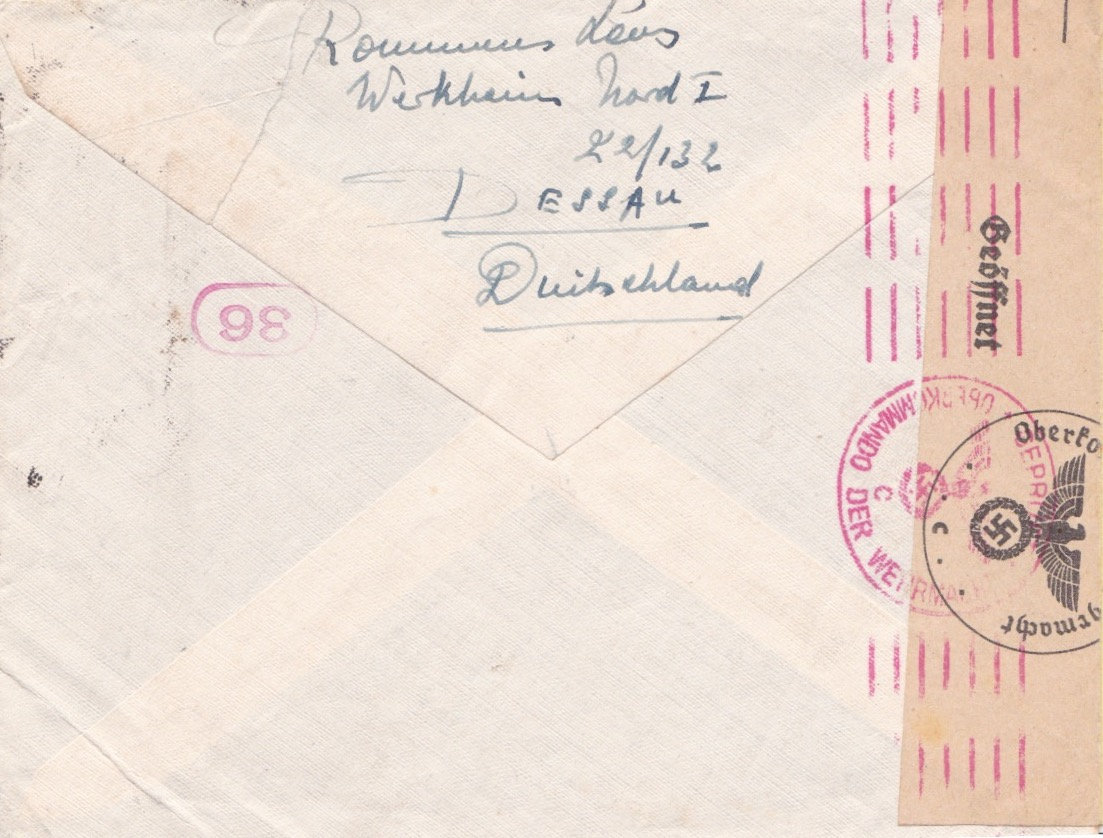 Kommmens Laus
Werkheim Nord I
Z2/132
DESSAU
Duitschland
36
Geöffnet
OBERKOMMANDO DER WEHRMACHT
GEPR
C
Oberko
c
gemacht